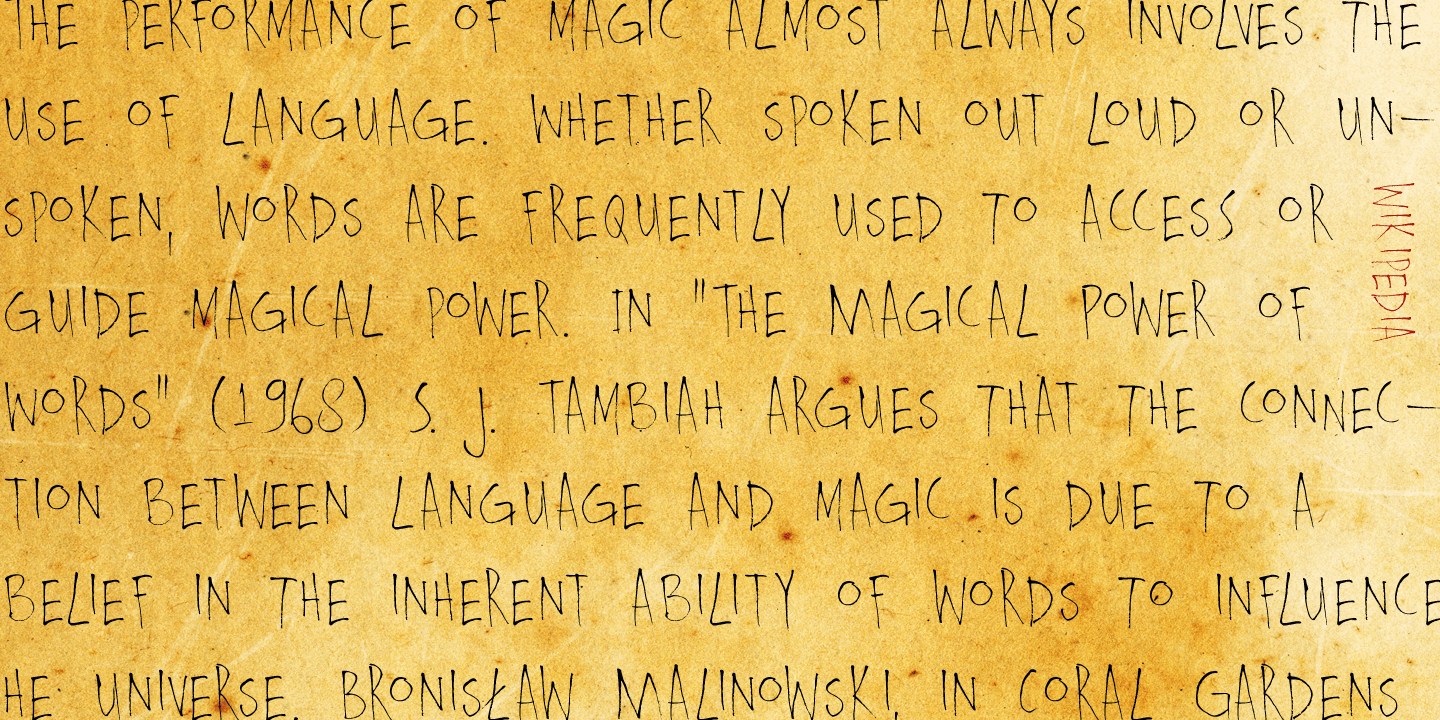 THE PERFORMANCE OF MAGIC ALMOST ALWAYS INVOLVES THE
USE OF LANGUAGE. WHETHER SPOKEN OUT LOUD OR UN-
SPOKEN, WORDS ARE FREQUENTLY USED TO ACCESS OR
GUIDE MAGICAL POWER. IN "THE MAGICAL POWER OF
WORDS" (1968) S. J. TAMBIAH ARGUES THAT THE CONNEC-
TION BETWEEN LANGUAGE AND MAGIC IS DUE TO A
BELIEF IN THE INHERENT ABILITY OF WORDS TO INFLUENCE
HE UNIVERSE. BRONISŁAW MALINOWSKI, IN CORAL GARDENS
WIKIPEDIA